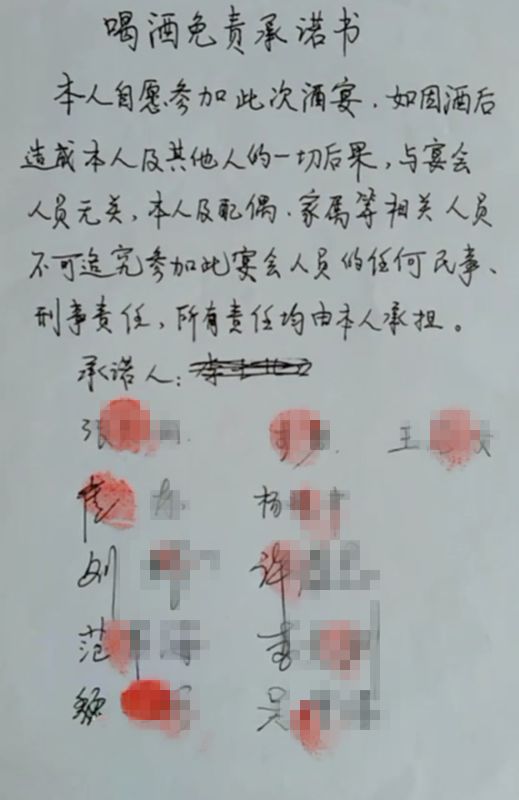 喝酒免责承诺书
本人自愿参加此次酒宴.如因酒后
造成本人及其他人的一切后果,与宴会
人员无关,本人及配偶.家属等相关人员
不可追究参加此宴会人员的任何民事、
刑事责任,所有责任均由本人承担。
承诺人:
张 王
杨
刘 许
范 李
吴